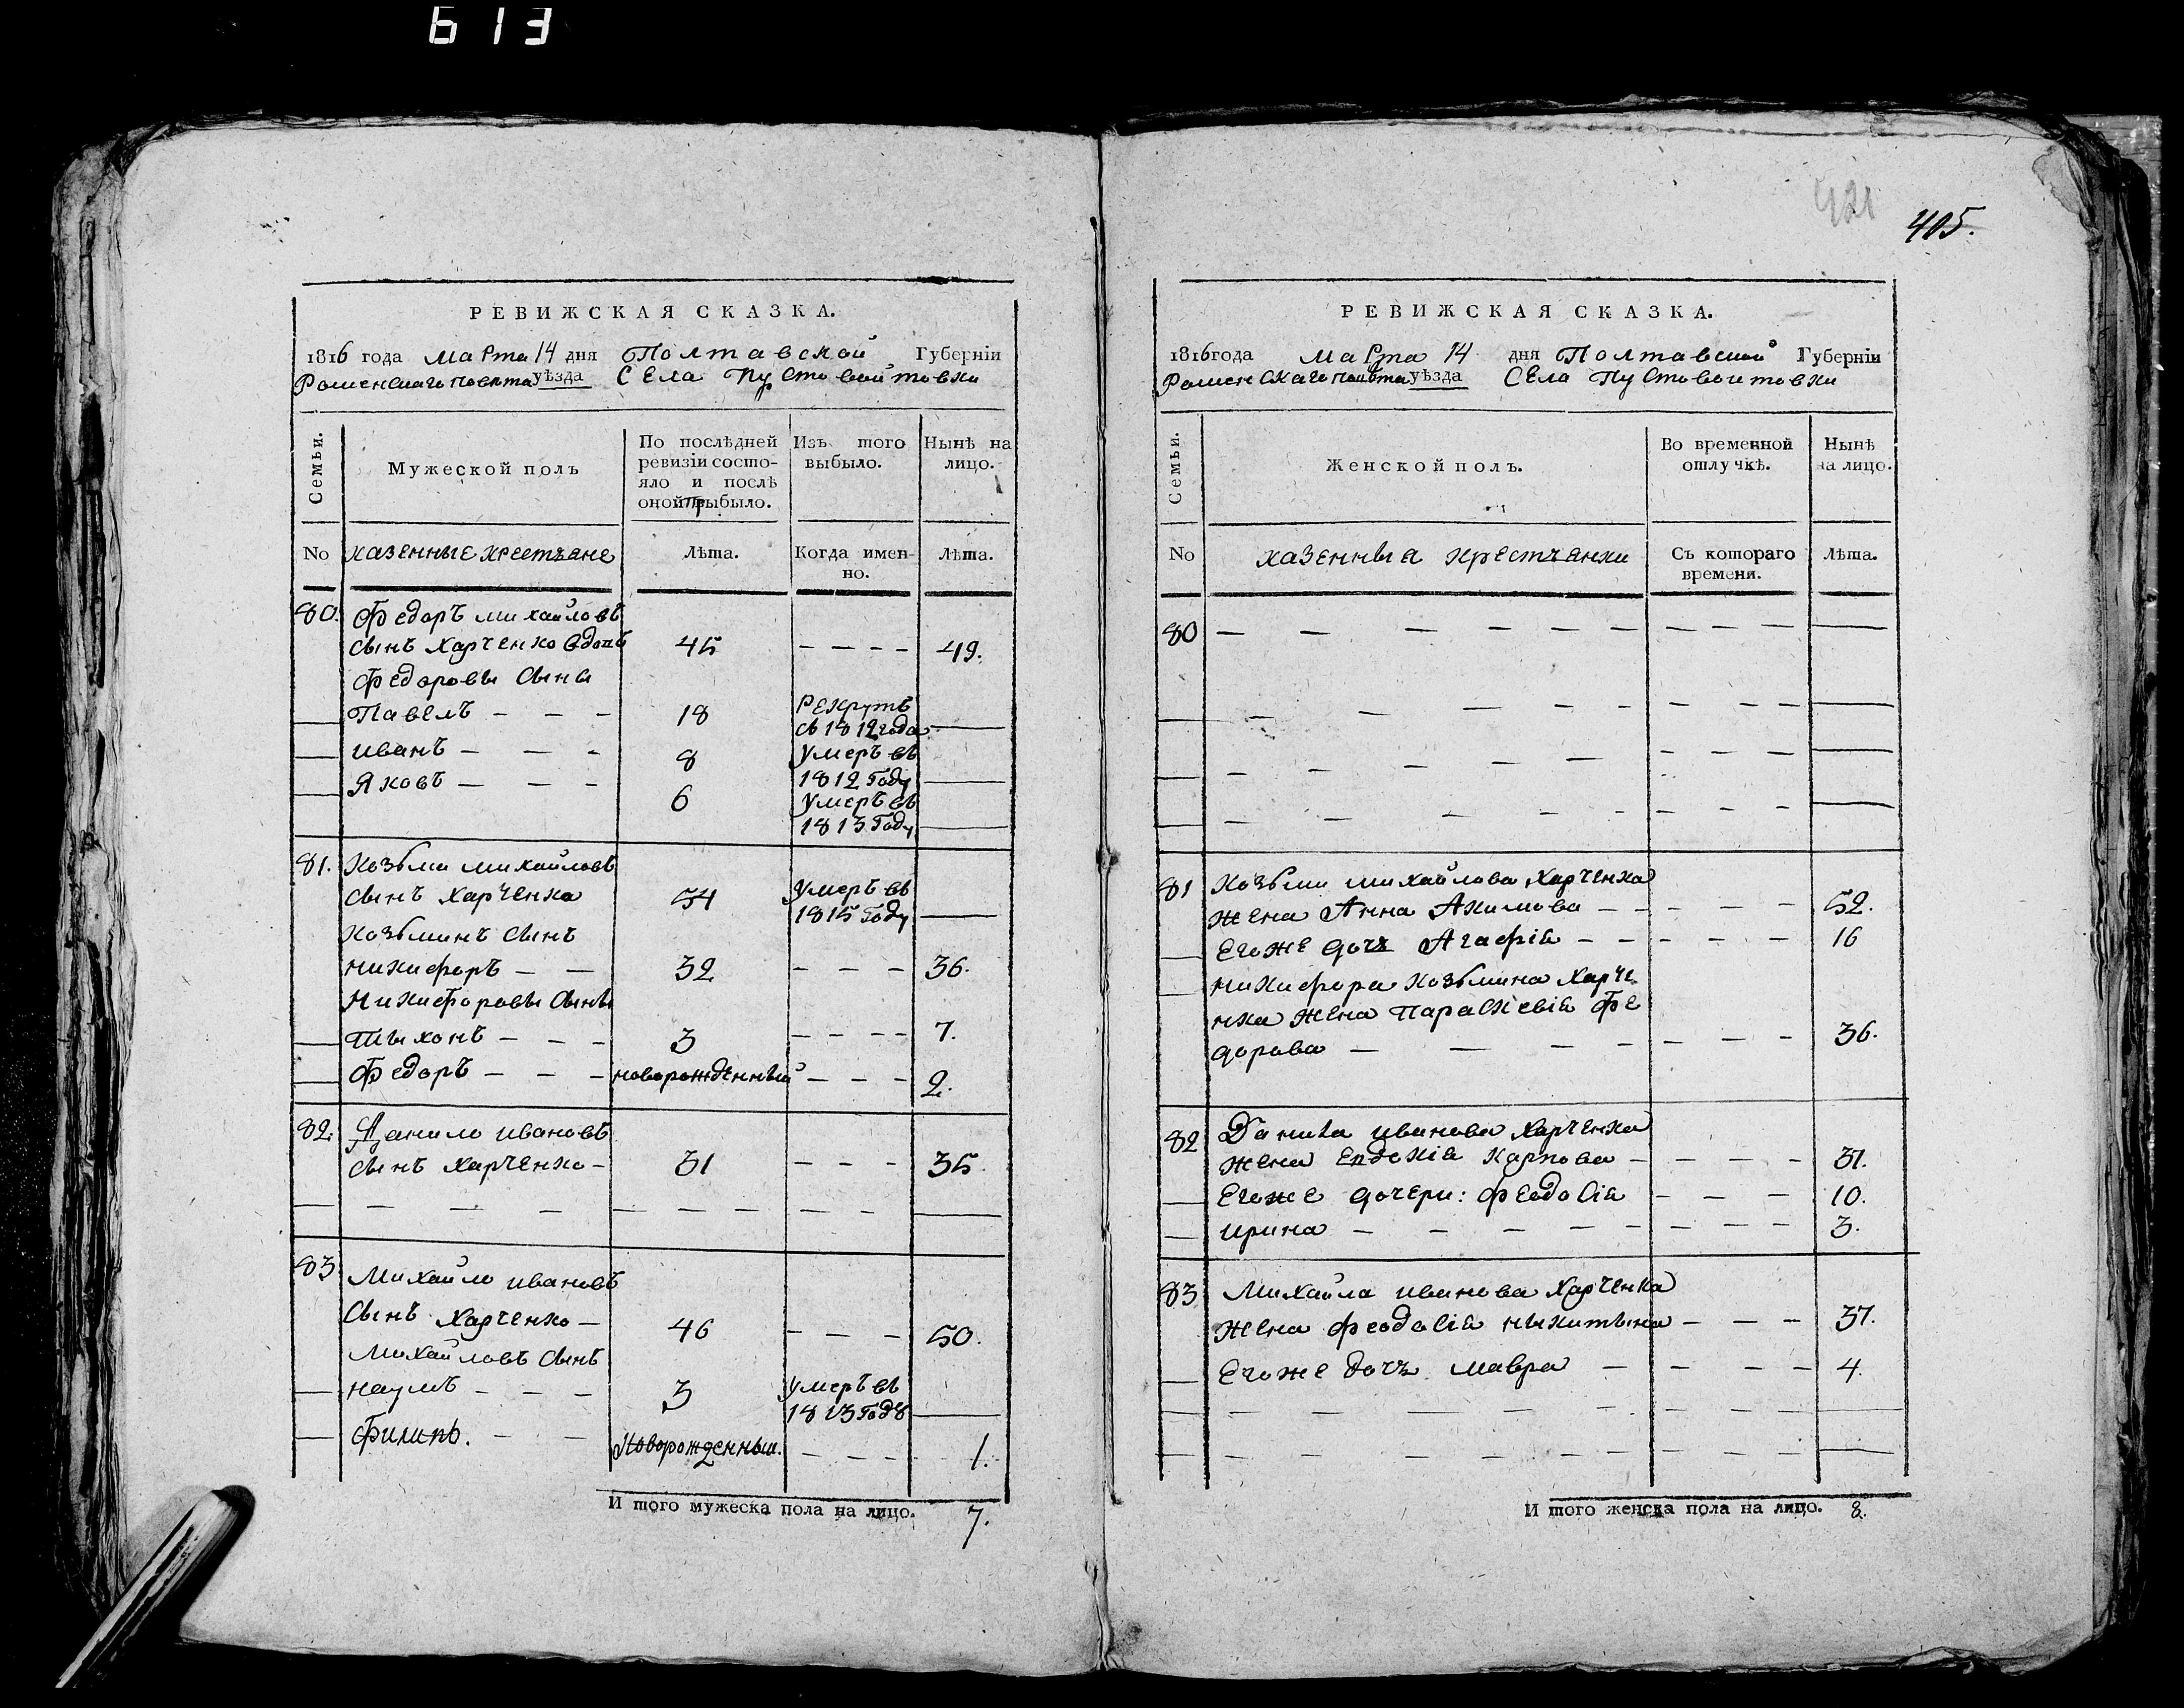 613
421
405.
РЕВИЖСКАЯ СКАЗКА.
1816 года Марта 14 дня Полтавской Губерніи
Роменскаго Повѣта уѣзда Села Пустовойтовки
Семьи.
Мужеской полъ
По послѣдней ревизіи состо-
яло и послѣ
оной Прибыло.
Изъ того
выбыло.
Нынѣ на
лицо.
No казенные крестъяне Лѣта. Когда имен-
но. Лѣта.
80. Федоръ Михайловъ
сынъ Харченко вдовъ 45 - - - - 49.
Федоровы сыны
Павелъ - - - 18 Рекрутъ
съ 1812 года —
Иванъ - - - 8 Умеръ въ
1812 Году —
Яковъ - - - 6 Умеръ въ
1813 Году —
81. Козьма Михайловъ
сынъ Харченко 54 Умеръ въ
1815 Году —
Козьминъ сынъ
Никифоръ - - 32 - - - 36.
Никифоровы сыны
Тихонъ - - - 3 - - - - 7.
Федоръ - - - новорожденный - - - 2.
82. Данило Ивановъ
сынъ Харченко - 31 - - - 35
83 Михайло Ивановъ
сынъ Харченко - 46 - - - 50.
Михайловъ сынъ
Наумъ - - - 3 Умеръ въ
1813 Годѣ —
Филипъ. - - Новорожденный. - - - 1.
И того мужеска пола на лицо. 7.
РЕВИЖСКАЯ СКАЗКА.
1816 года Марта 14 дня Полтавской Губерніи
Роменскаго Повѣта уѣзда Села Пустовоитовки
Семьи.
Женской полъ.
Во временной
отлучкѣ.
Нынѣ
на лицо.
No казенныя крестъянки Съ котораго
времени. Лѣта.
80 - - - - - - - - - - —
81 Козьми Михайлова Харченка
жена Анна Акимова - - - - - 52.
Егоже дочъ Агафія - - - - - 16
Никифора Козьмина Харче
нка жена Параскевія Фе
дорова - - - - - - - 36.
82 Данила Иванова Харченка
жена Евдокія Карпова - - - - 31.
Егоже дочери: Феодосія - - - 10.
Ирина - - - - - - - - 3.
83 Михайла Иванова Харченка
жена Феодосія Никитина - - - 37.
Егоже дочъ Мавра - - - - 4.
И того женска пола на лицо. 8.